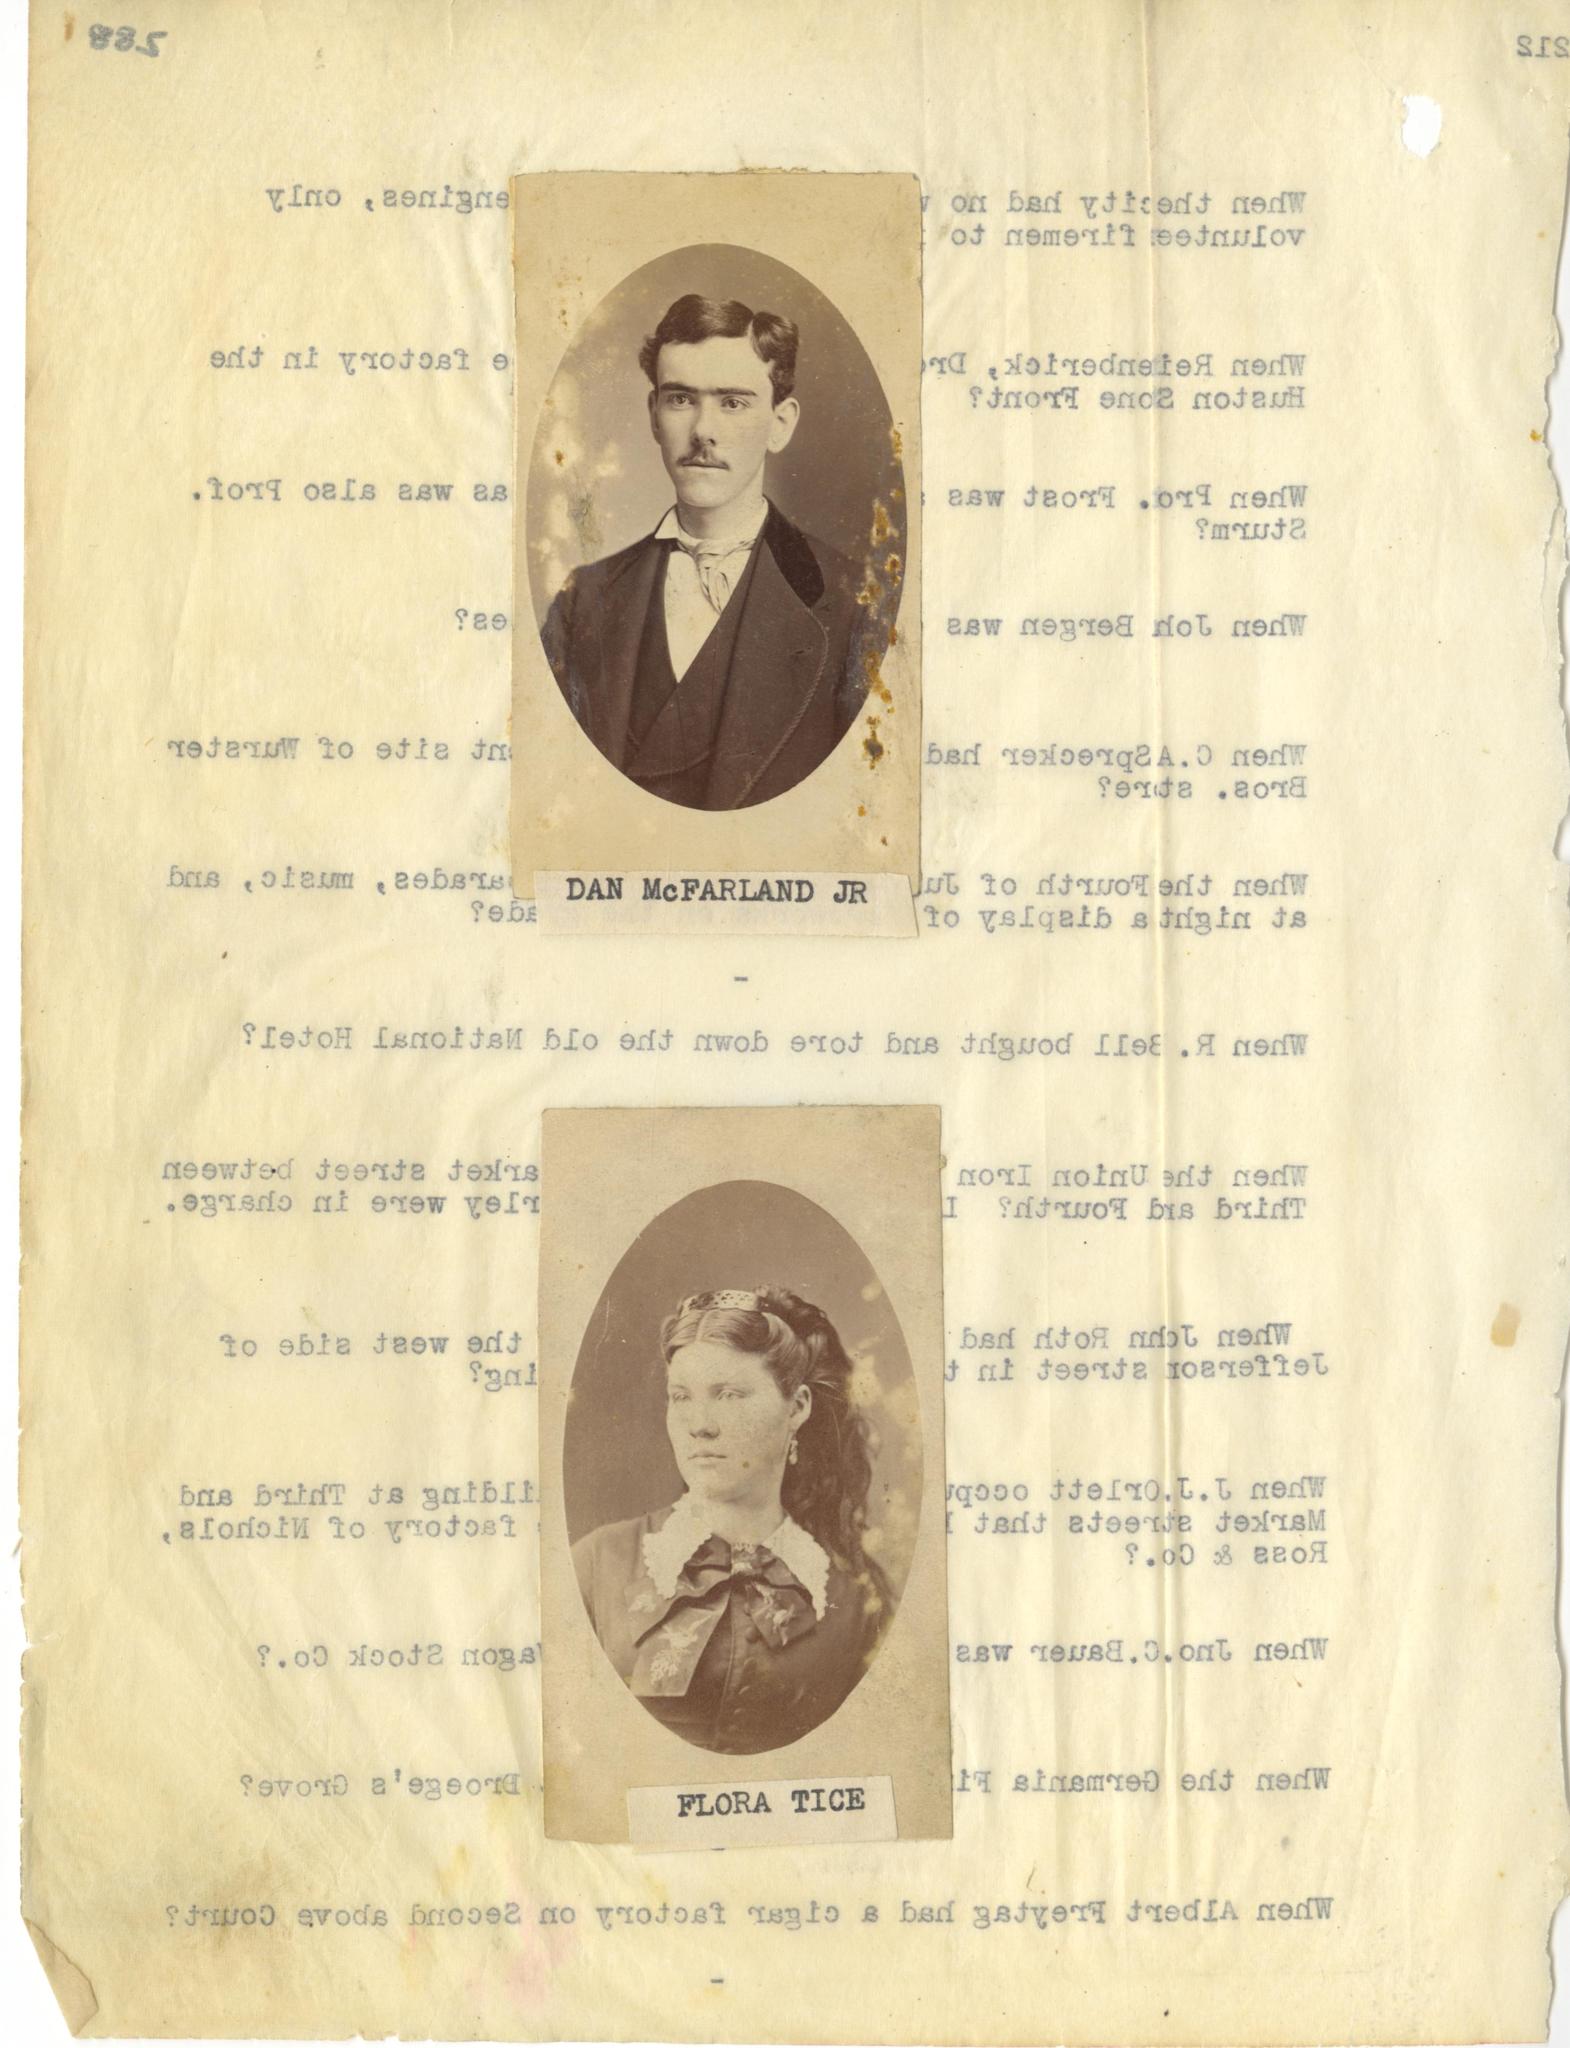 288
212
When the city had no
engines, only
volunteer firemen to
When Reifenberick,
factory in the
Huston Sone Front?
When Pro. Frost was
as was also Prof.
Sturm?
When Joh Bergen was
When C.A Sprecker had
site of Wurster
Bros. store?
When the Fourth of
music, and
at night a display of
-
When R. Bell bought and tore down the old National Hotel?
When the Union Iron
street between
Third and Fourth?
were in charge.
When John Roth had
the west side of
Jefferson street in
When J.J.Orlett
at Third and
Market streets that
factory of Nichols,
Ross & Co.?
When Jno.C.Bauer was
Stock Co.?
When the Germania
Droege's Grove?
When Albert Freytag had a cigar factory on Second above Court?
-
DAN McFARLAND JR
FLORA TICE